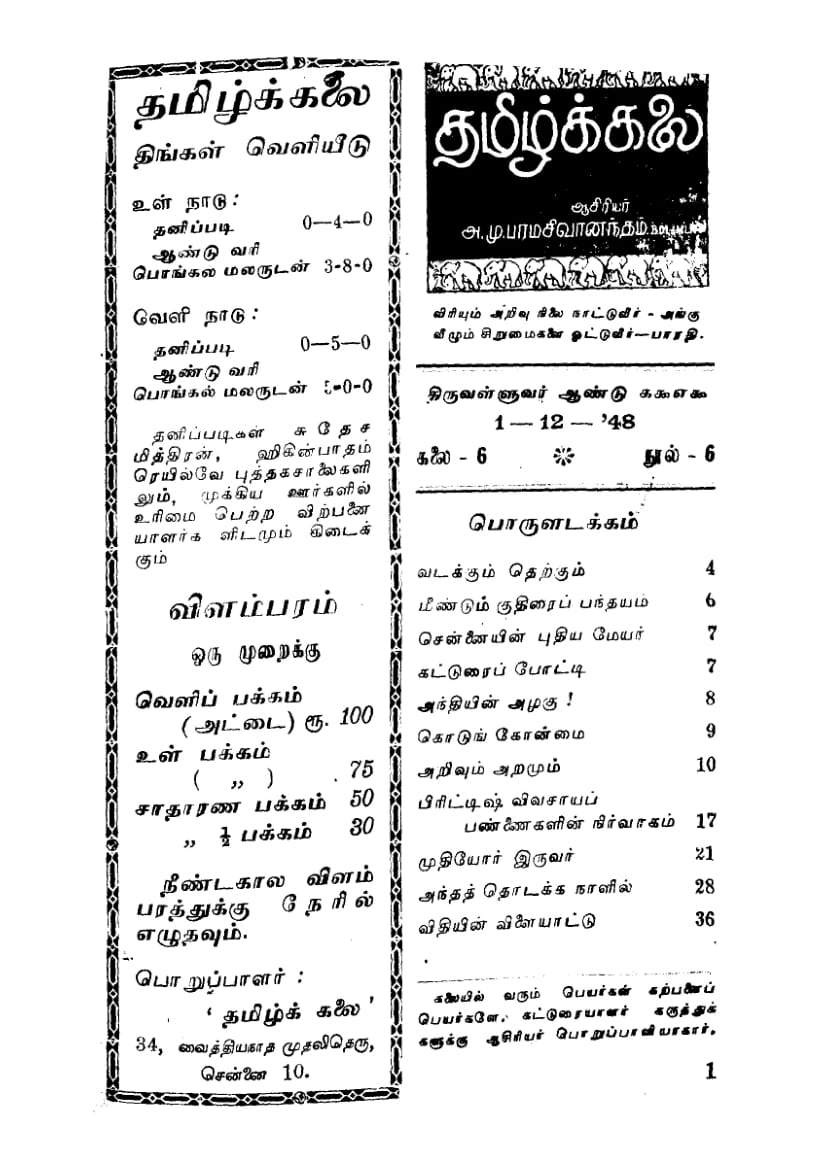 தமிழ்க்கலை
திங்கள் வெளியீடு
உள் நாடு:
தனிப்படி 0—4—0
ஆண்டு வரி
பொங்கல மலருடன் 3-8-0
வெளி நாடு:
தனிப்படி 0—5—0
ஆண்டு வரி
பொங்கல் மலருடன் 5-0-0
தனிப்படிகள் சுதேச
மித்திரன், ஹிகின்பாதம்
ரெயில்வே புத்தகசாலைகளி
லும், முக்கிய ஊர்களில்
உரிமை பெற்ற விற்பனை
யாளர்க ளிடமும் கிடைக்
கும்
விளம்பரம்
ஒரு முறைக்கு
வெளிப் பக்கம்
(அட்டை) ரூ. 100
உள் பக்கம்
( ,, ) . 75
சாதாரண பக்கம் 50
,, ½ பக்கம் 30
நீண்டகால விளம்
பரத்துக்கு நேரில்
எழுதவும்.
பொறுப்பாளர் :
‘ தமிழ்க் கலை ’
34, வைத்தியநாத முதலிதெரு,
சென்னை 10.
தமிழ்க்கலை
ஆசிரியர்
அ.மு.பரமசிவானந்தம்.
விரியும் அறிவு நிலை நாட்டுவீர் - அங்கு
வீழும் சிறுமைகளை ஓட்டுவீர்—பாரதி.
திருவள்ளுவர் ஆண்டு ௧௯௭௯
1 — 12 — '48
கலை - 6 நூல் - 6
பொருளடக்கம்
வடக்கும் தெற்கும் 4
மீண்டும் குதிரைப் பந்தயம் 6
சென்னையின் புதிய மேயர் 7
கட்டுரைப் போட்டி 7
அந்தியின் அழகு ! 8
கொடுங் கோன்மை 9
அறிவும் அறமும் 10
பிரிட்டிஷ் விவசாயப்
பண்ணைகளின் நிர்வாகம் 17
முதியோர் இருவர் 21
அந்தத் தொடக்க நாளில் 28
விதியின் விளையாட்டு 36
கலையில் வரும் பெயர்கள் கற்பனைப்
பெயர்களே. கட்டுரையாளர் கருத்துக்
களுக்கு ஆசிரியர் பொறுப்பாளியாகார்.
1